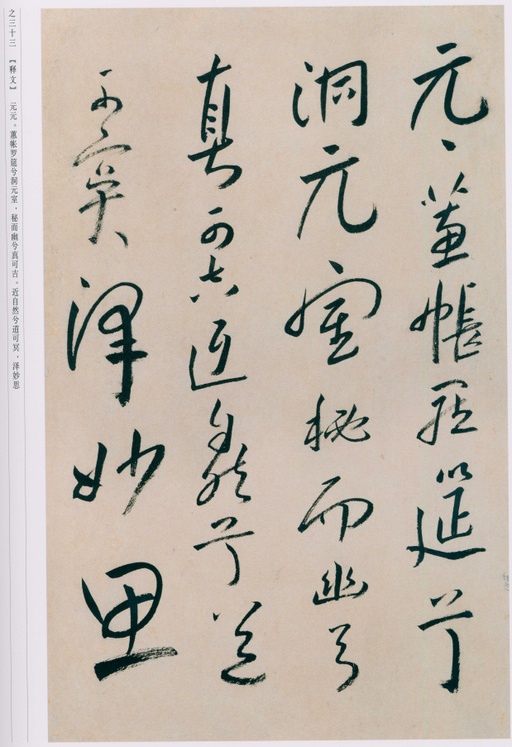 元〻蕙帳羅筵兮
洞元室秘而幽兮
真可吉近自然兮道
可冥澤妙思
之三十三 【释文】 元元。蕙帐罗筵兮洞元室，秘而幽兮真可吉。近自然兮道可冥，泽妙思